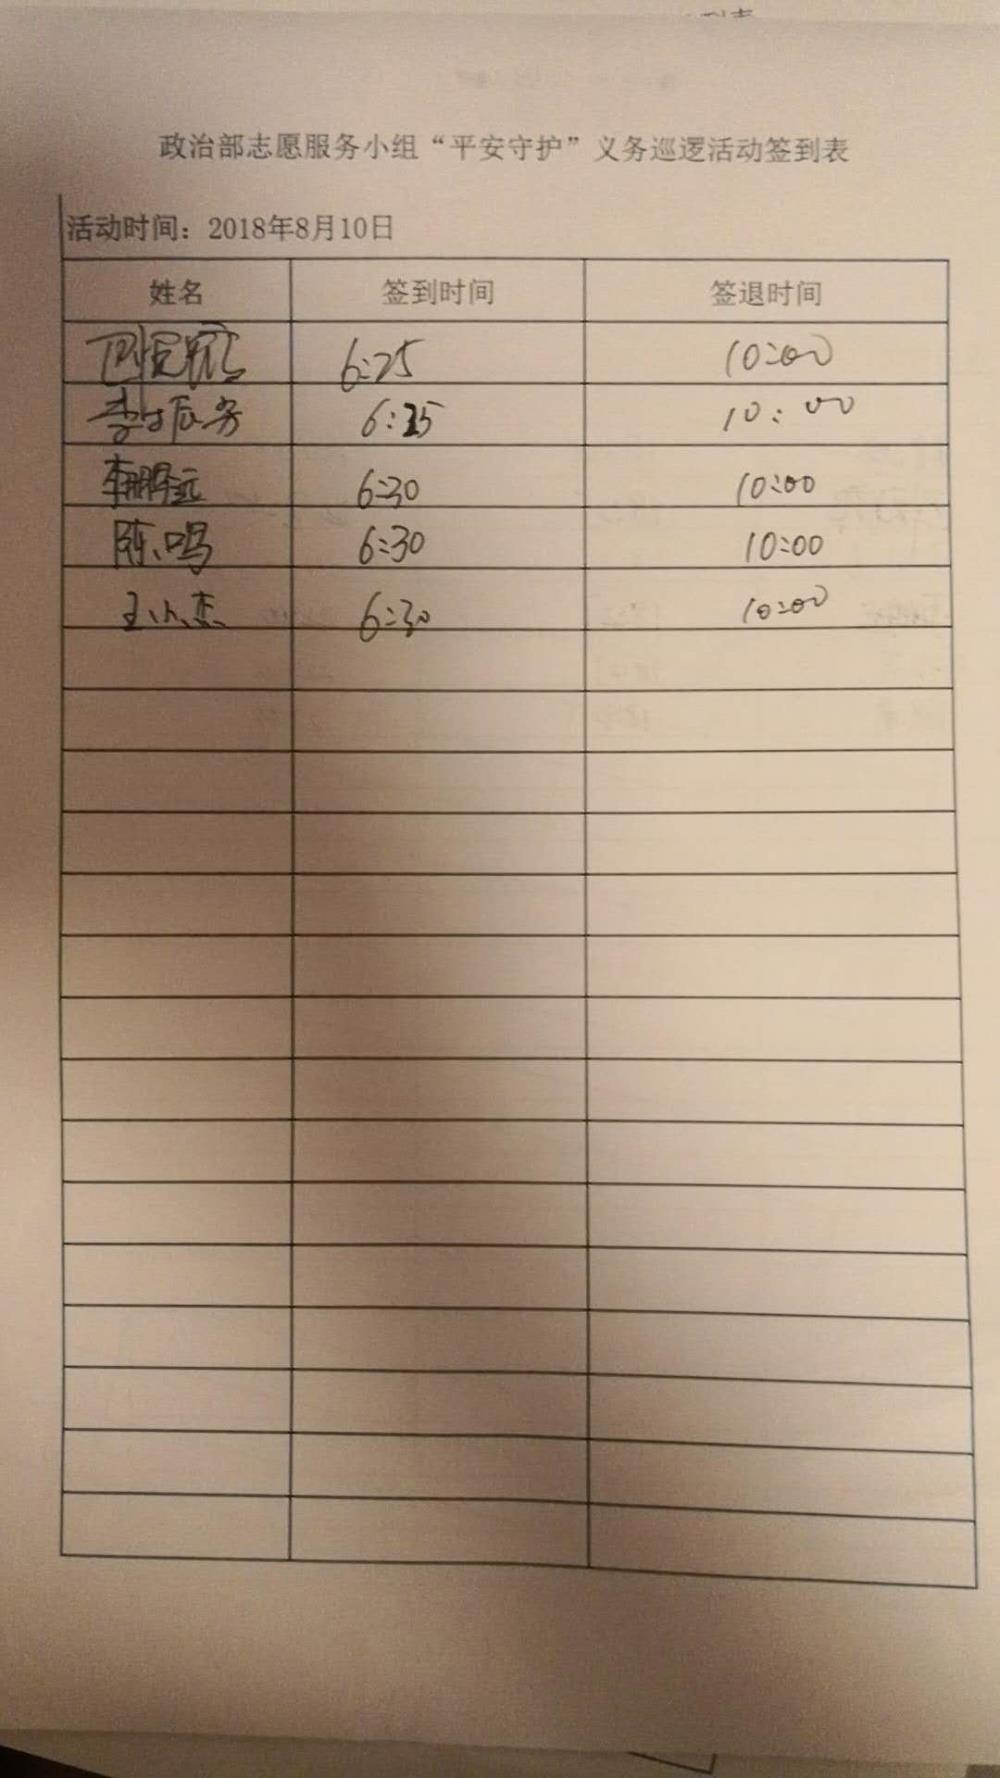 政治部志愿服务小组“平安守护”义务巡逻活动签到表
活动时间：2018年8月10日
姓名 签到时间 签退时间
6:25 10:00
6:25 10:00
李鹏远 6:30 10:00
陈鸣 6:30 10:00
王小杰 6:30 10:00